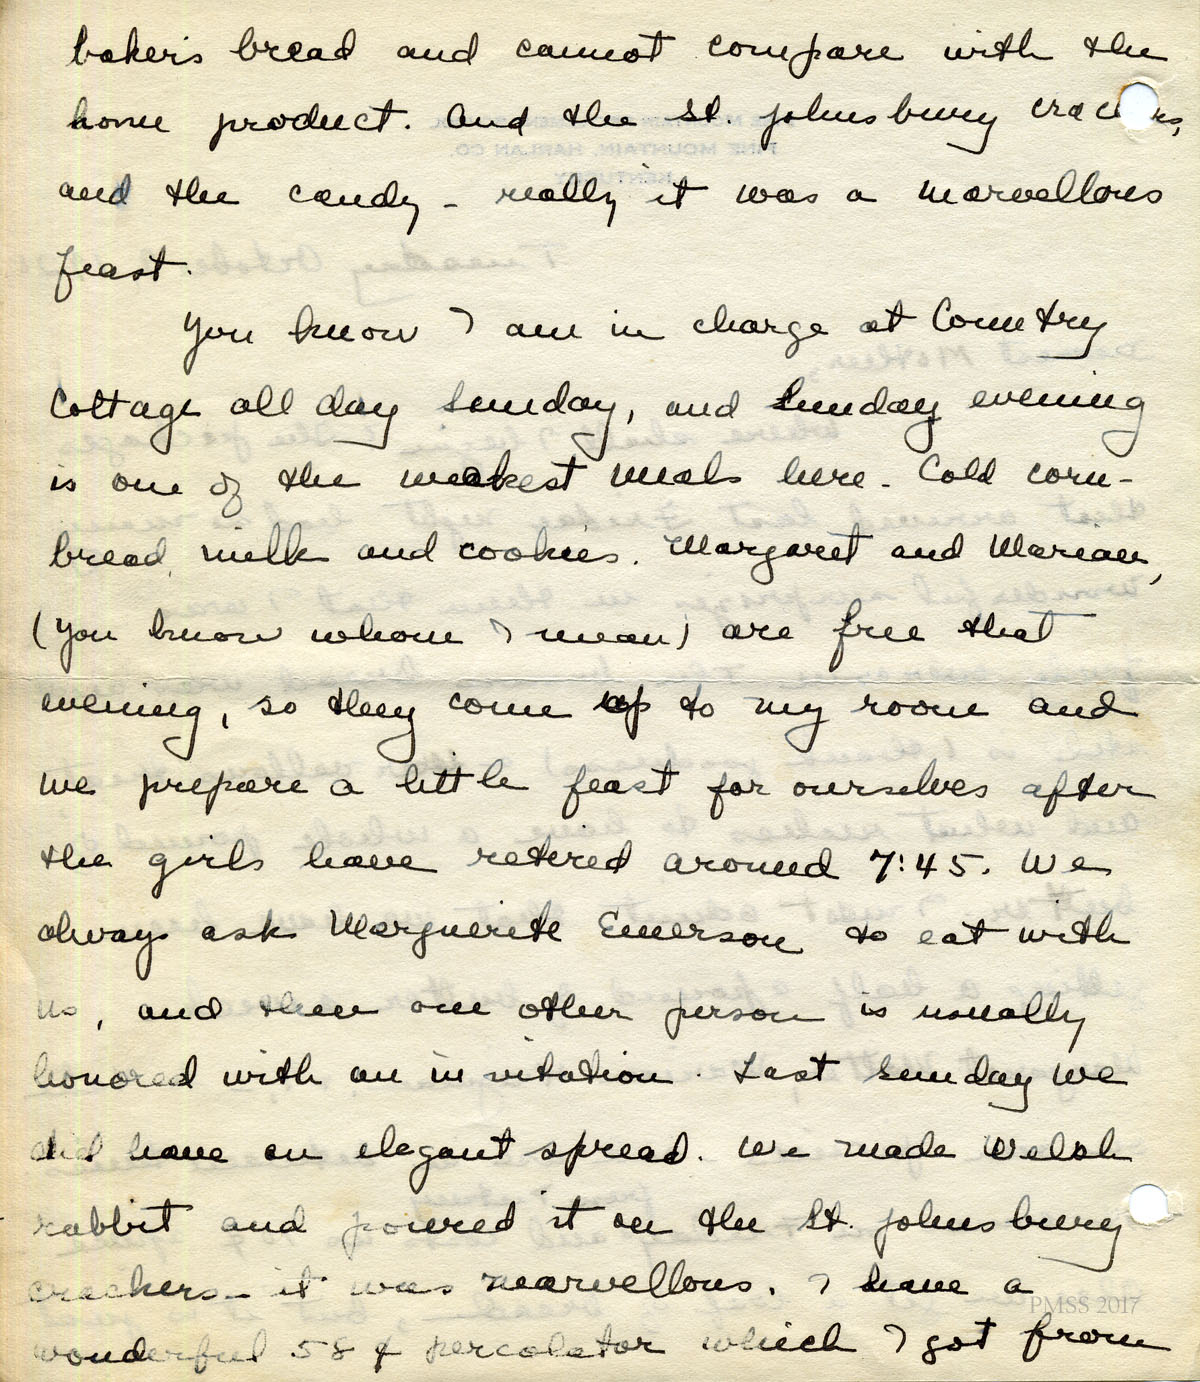 baker's bread and cannot compare with the
home product. And the St. Johnsbury crackers,
and the candy - really it was a marvellous
feast.
You know I am in charge at Country
Cottage all day Sunday, and Sunday evening
is one of the weakest meals here. Cold corn-
bread, milk and cookies. Margaret and Marian,
(you know whom I mean) are free that
evening, so they come up to my room and
we prepare a little feast for ourselves after
the girls have retired around 7:45. We
always ask Marguerite Emerson to eat with
us, and then one other person is usually
honored with an invitation. Last Sunday we
did have an elegant spread. We made Welsh
rabbit and poured it on the St. Johnsbury
crackers - it was marvellous. I have a
wonderful 58¢ percolator which I got from
PMSS 2017